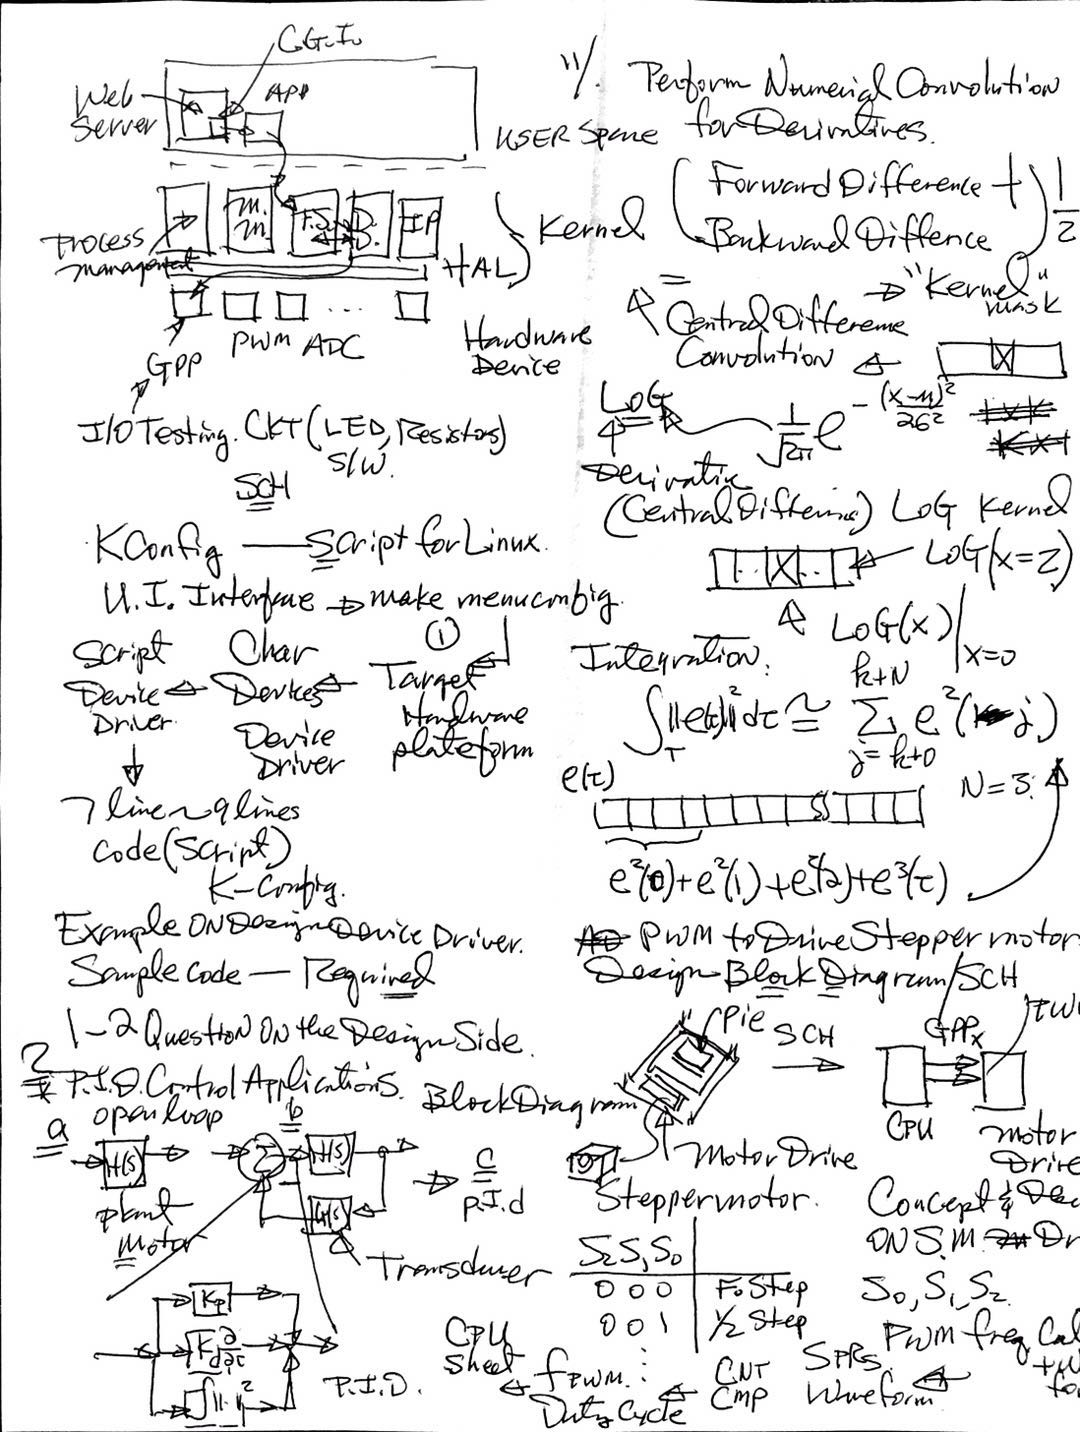 C.G.I.
Web
Server
APP
USER Space
Process
management
m.
m.
F.S.
D.
D.
IP
Kernel
HAL
PWM ADC
...
Hardware
Device
GPP
I/O Testing. CKT (LED, Resistors)
S/W.
SCH
KConfig — Script for Linux.
U.I. Interface → make menuconfig.
①
Script
Device
Driver
Char
Devices
Device
Driver
Target
Hardware
plateform
7 line ~ 9 lines
Code (Script)
K-Config.
Example ON Design Device Driver.
Sample Code — Required
1-2 Question On the Design Side.
2
* P.I.D. Control Applications.
open loop
a
H(s)
plant
motor
b
Σ
H(s)
G(s)
Transducer
C
P.I.d
Kp
P.I.D.
Perform Numerical Convolution
for Derivatives.
(Forward Difference +
Backward Diffence) 1/2
=
Central Difference
Convolution
→ "Kernel"
mask
X
LOG
1/√2π e -(x-μ)²/2σ²
Derivative
(Central Difference) LOG Kernel
X
LOG(x=2)
LOG(x)|x=0
Integration.
∫T ||e(τ)||² dτ ≅ Σ e²(j)
k+N
j=k+0
e(τ)
N=3.
e²(0)+e²(1)+e²(2)+e³(τ)
PWM to Drive Stepper motor
Design Block Diagram/SCH
Block Diagram
Pie
SCH
GPPx
PW
CPU
motor
Drive
Motor Drive
Stepper motor.
Concept &
ON S.M. Dr
S2 S1 S0
0 0 0 F. Step
0 0 1 1/2 Step
S0, S1, S2.
PWM freq Cal
CPU
Sheet
fPWM.
Duty Cycle
CNT
CMP
SPRs.
Waveform